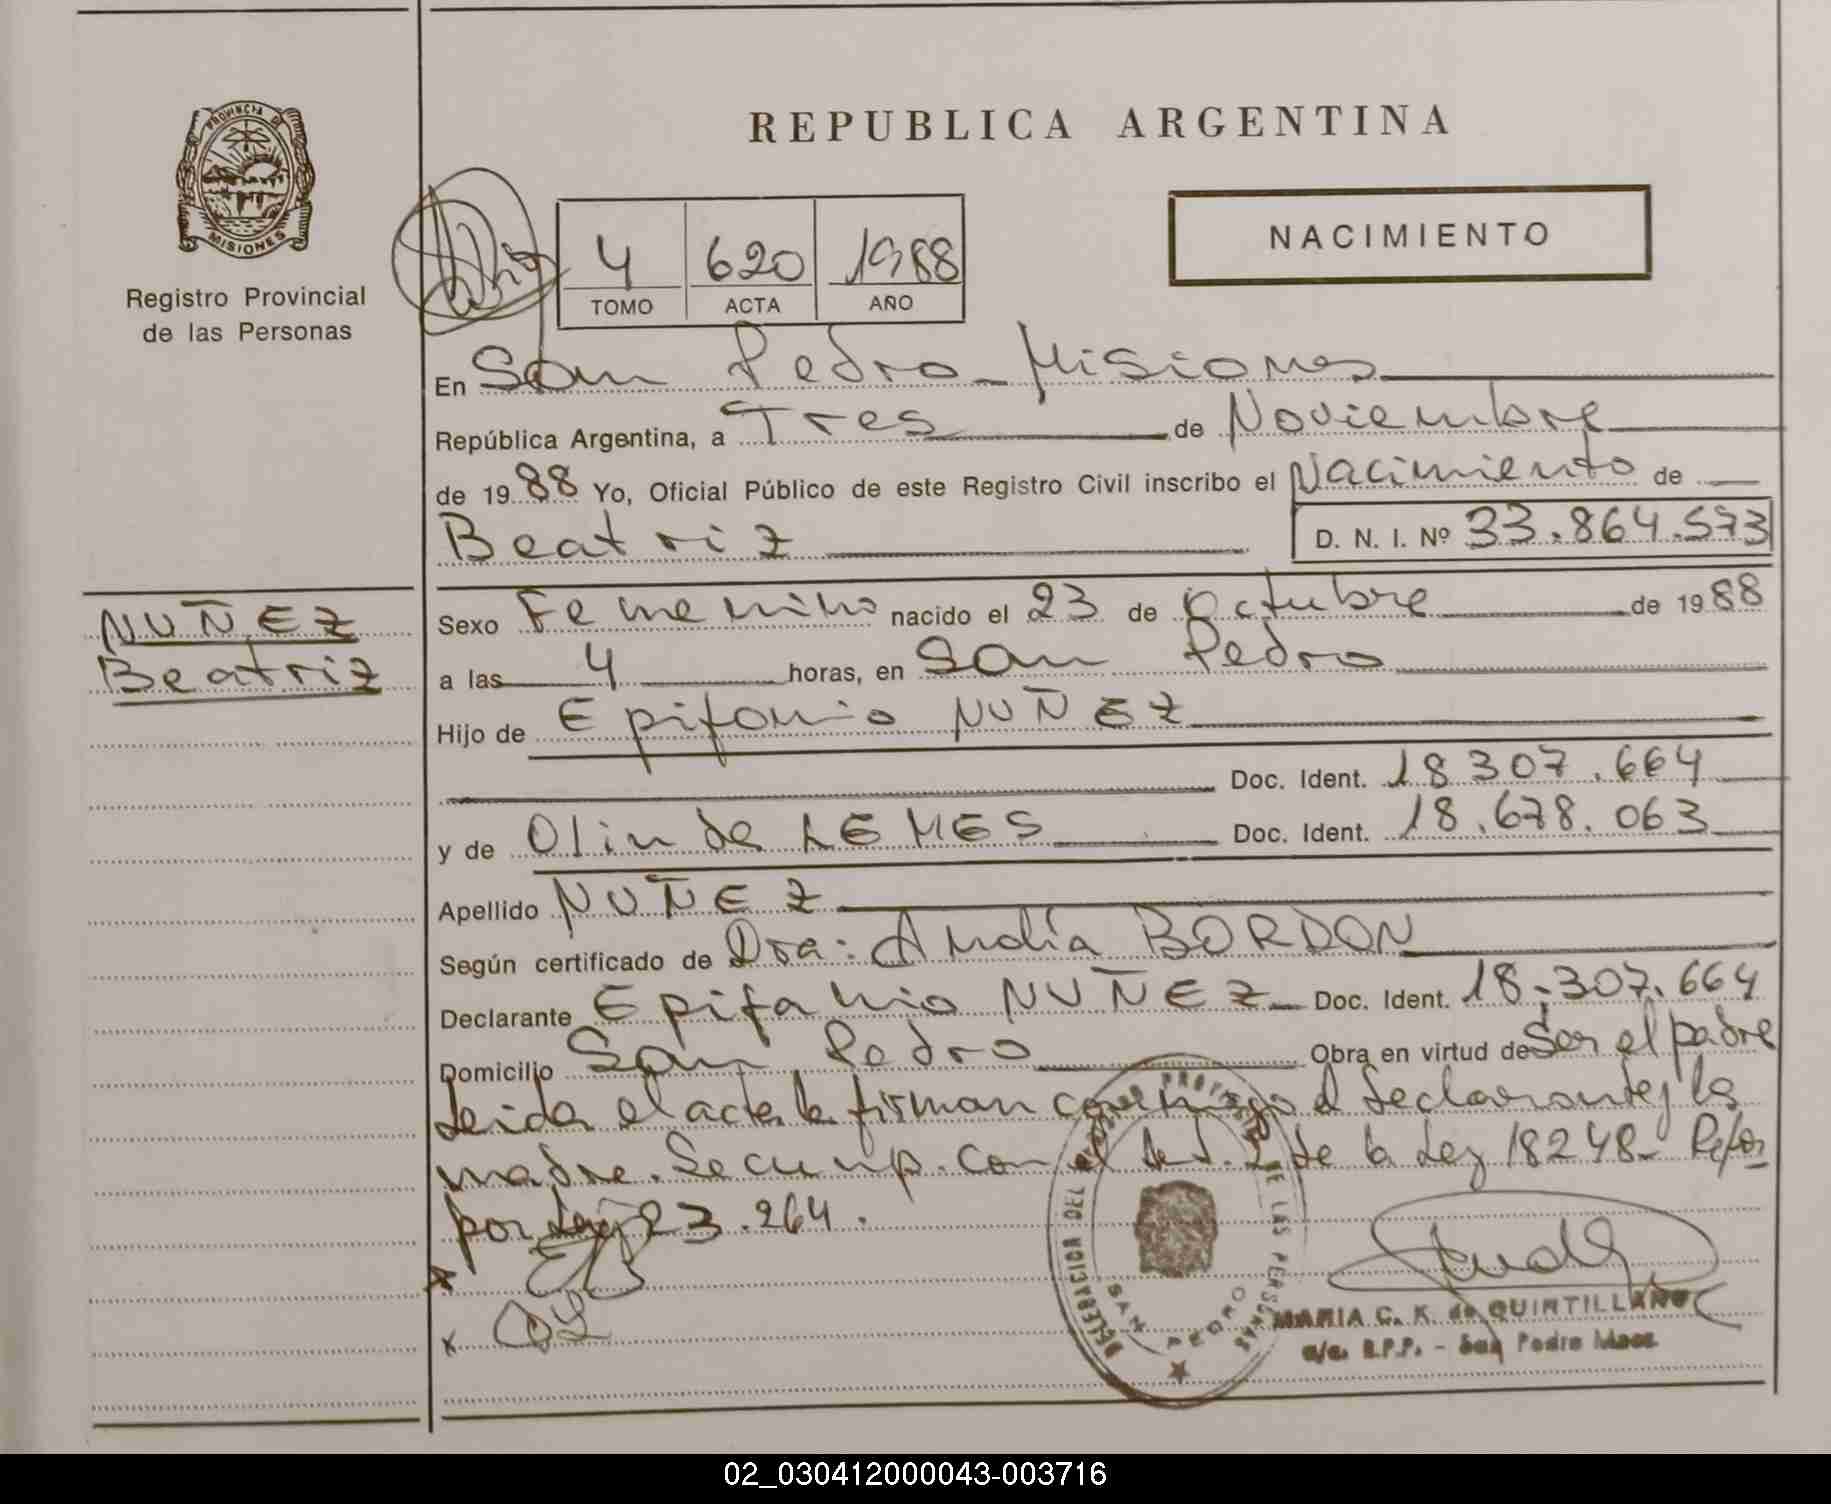 PROVINCIA DE
MISIONES
Registro Provincial
de las Personas
REPUBLICA ARGENTINA
NACIMIENTO
4 620 1988
TOMO ACTA AÑO
En San Pedro - Misiones
República Argentina, a Tres de Noviembre
de 1988 Yo, Oficial Público de este Registro Civil inscribo el Nacimiento de
Beatriz D. N. I. Nº 33.864.573
NUÑEZ
Beatriz
Sexo Femenino nacido el 23 de Octubre de 1988
a las 4 horas, en San Pedro
Hijo de Epifanio NUÑEZ
Doc. Ident. 18.307.664
y de Olinda LEMES Doc. Ident. 18.678.063
Apellido NUÑEZ
Según certificado de Dra: Analía BORDON
Declarante Epifanio NUÑEZ Doc. Ident. 18.307.664
Domicilio San Pedro Obra en virtud de Ser el padre
Leida el acta la firman conmigo el declarante y la
madre. Se cump. con el Art. 2 de la Ley 18248- Refor
por Ley 23.264.
DELEGACION DEL REGISTRO PROVINCIAL DE LAS PERSONAS
SAN PEDRO
MARIA C. K. de QUINTILLANO
a/c. R.P.P. - San Pedro Mnes.
02_030412000043-003716